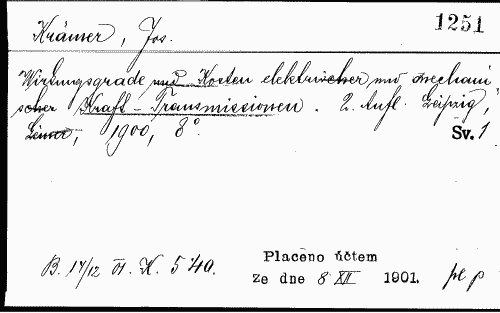 1251
Krämer, Jos.
Wirkungsgrade und Kosten elektrischer und mechani
scher Kraft-Transmissionen. 2. Aufl. Leipzig,
Leiner, 1900, 8°.
Sv. 1
B. 17/12 K. 5'40.
Placeno účtem
Ze dne 8 XII 1901.